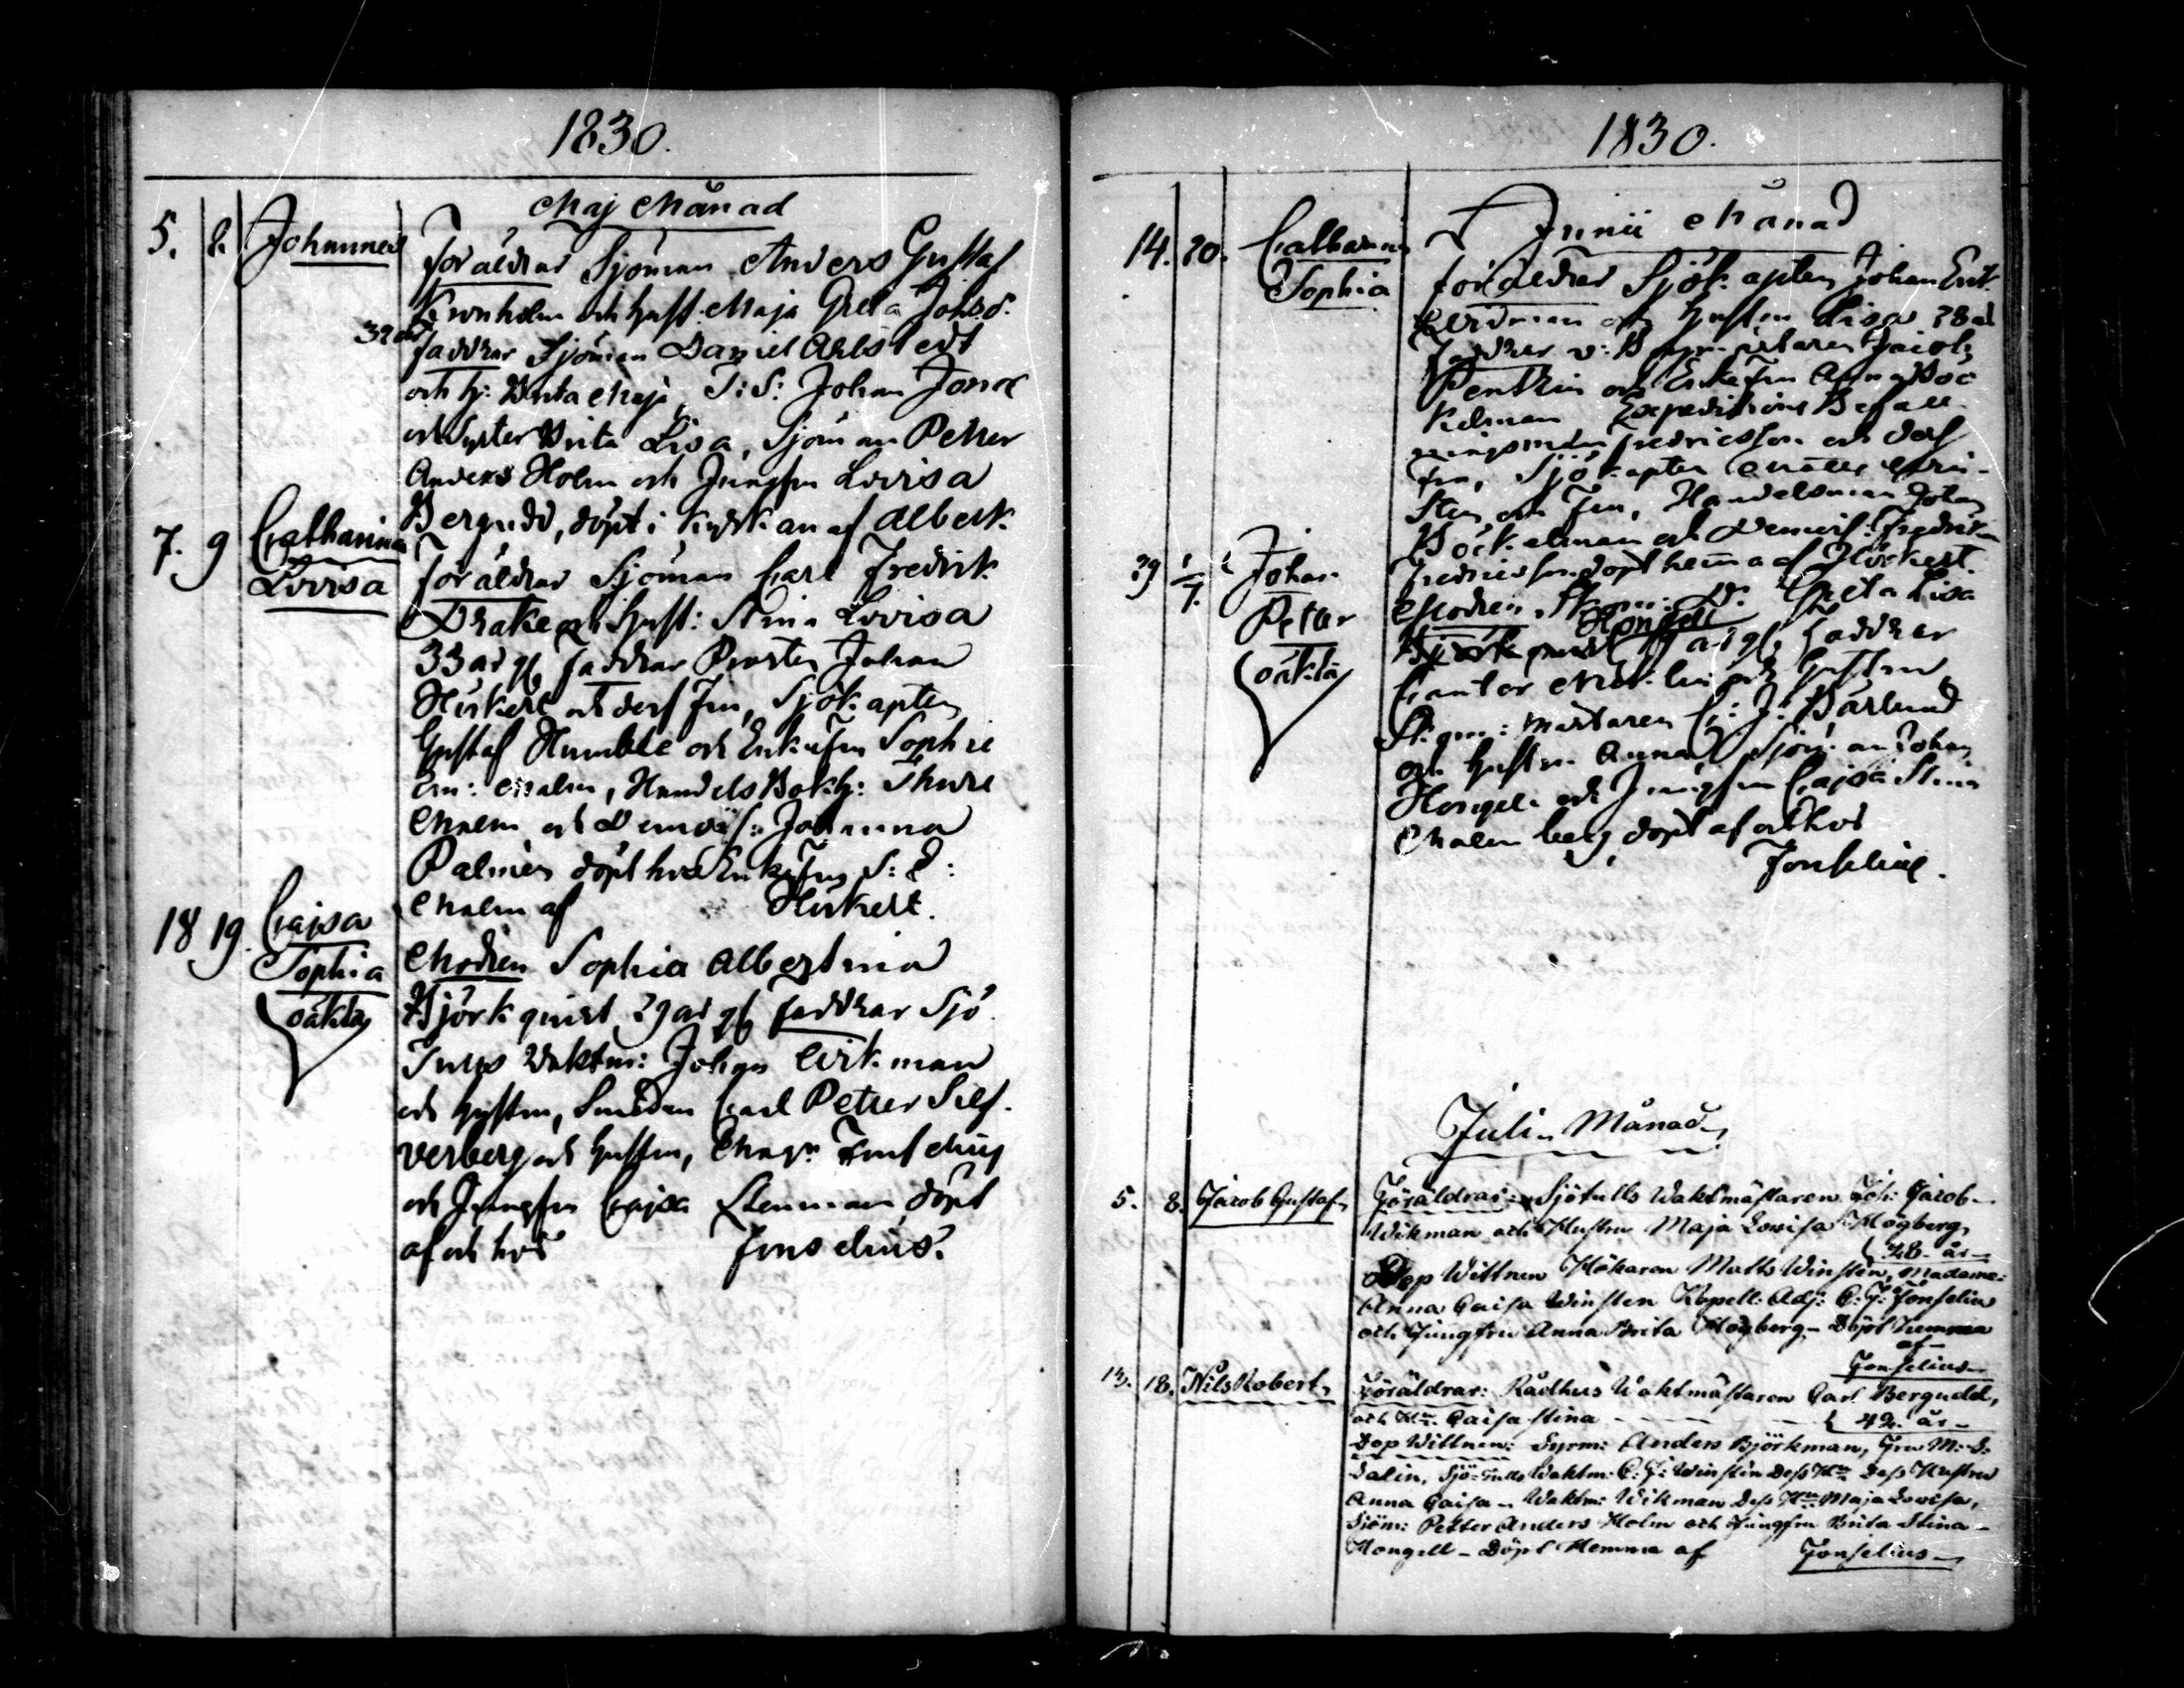 1830.
Maj Månad
5. 8. Johannes
Föräldrar Sjöman Anders Gustaf
Kronholm och Hust. Maja Greta Johsd.
32 år faddrar Sjöman Daniel Ahlstedt
och h: Brita Maja, S: S: Johan Jons
och Syster Brita Lisa, Sjöman Petter
Anders Holm och Jungfru Lovisa
Bergudd, döpt i kyrkan af Alberk.
7. 9 Catharina
Lovisa
Föräldrar Sjöman Carl Fredrik
Drake och Hust: Stina Lovisa
33 år gl faddrar Prosten Johan
Hirkert och dess Fru, Sjökapten
Gustaf Humble och Enkefru Sophie
Em: Malm, Handels Bokh: Thure
Malm och Demois: Johanna
Palmén döpt hos Enkefru S: E:
Malm af Hirkert.
18 19. Cajsa
Sophia
oäkta
Modren Sophia Albertina
Björkqvist 29 år gl faddrar Sjö
Tulls Vaktm: Johan Wikman
och hustru, Smeden Carl Petter Silf-
verberg och hustru, Mag: Fonselius
och Jungfru Cajsa Stenman döpt
af och hos Fonselius.
1830.
Junii Månad
14. 20. Catharina
Sophia
föräldrar Sjökapten Johan Erik
och Hustru Lisa 28 år
faddrar Jacob
Penthin och Enkefru Anna Böc
kelman Expeditions Befall
ningsman Fredricsson och dess
fru, Sjökapten
Sten och Fru, Handelsman Johan
Böckelman och Demois: Fredrika
Fredricsson döpt hemma af Hirkert.
29 1/7. Johan
Petter
oäkta
Modren, D: Greta Lisa
Hongell
Björkqvist år gl. faddrar
Cantor och hustru
mästaren C: J: Barlund
och hustru Anna Sjöman Johan
Hongell och Jungfru Cajsa Stina
Malmberg, döpt af och hos
Fonselius.
Julii Månad
5. 8. Jacob Gustaf
Föräldrar: Sjötulls Waktmästaren Joh: Jacob
Wikman och Hustru Maja Lovisa Högberg
48 år
Dop Wittnen Hökaren Matts Winsten, Madame:
Anna Caisa Winsten Kapell: Adj: C: J: Fonselius
och Jungfru Anna Brita Högberg - Döpt Hemma
af
Fonselius
13. 18. Nils Robert
Föräldrar: Rådhus Waktmästaren Carl Bergudd,
och H:u Caisa Stina
42 år
Dop Wittnen: Styrm: Anders Björkman, Fru M: S:
Dalin, Sjö-Tulls Waktm: C: J: Winsten Dess H:u Dess Hustru
Anna Caisa - Waktm: Wikman Dess H:u Maja Lovisa,
Sjöm: Petter Anders Holm och Jungfru Brita Stina
Hongell - Döpt Hemma af Fonselius